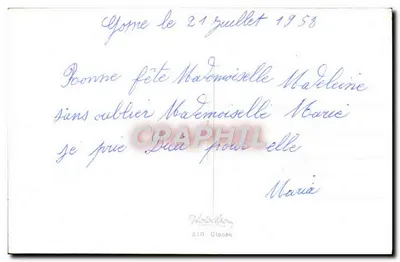 le 21 Juillet 1958
Bonne fête Mademoiselle Madeleine
sans oublier Mademoiselle Marie
je prie Dieu pour elle
CRAPHIL
Maria